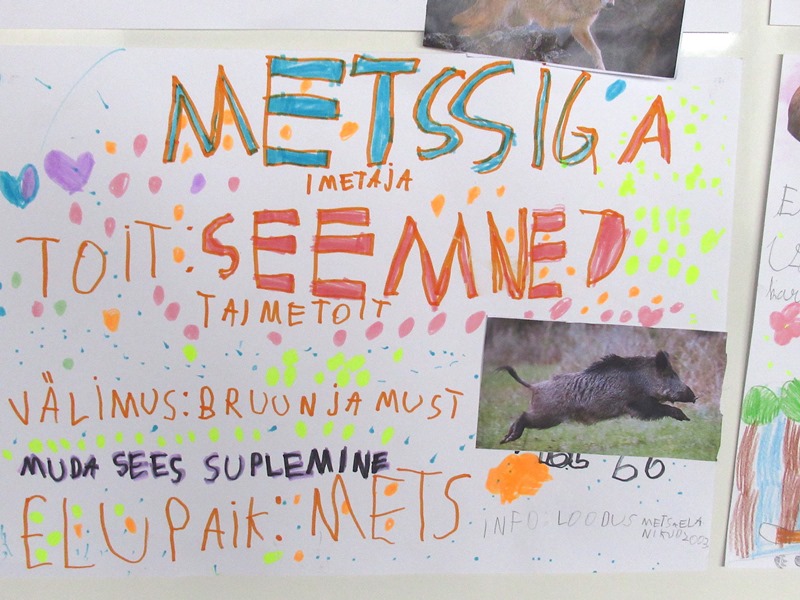 METSSIGA
IMETAJA
TOIT: SEEMNED
TAIMETOIT
VÄLIMUS: BRUUN JA MUST
MUDA SEES SUPLEMINE
ELUPAIK: METS
INFO: LOODUS METSAELA
NIKUD 2003